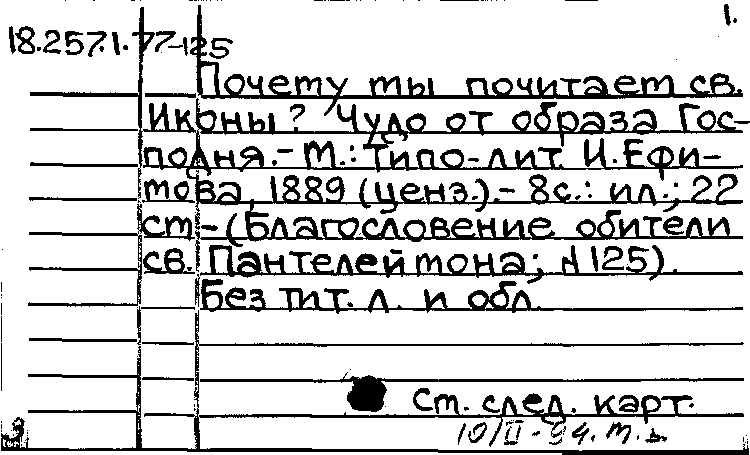 1.
18.257.1.77-125
Почему мы почитаем св.
Иконы? Чудо от образа Гос-
подня.- М.: Типо-лит. И.Ефи-
мова, 1889 (ценз.).- 8с.: ил.; 22
см -(Благословение обители
св. Пантелеймона; №125).
Без тит. л. и обл.
См. след. карт.
10/II-94.